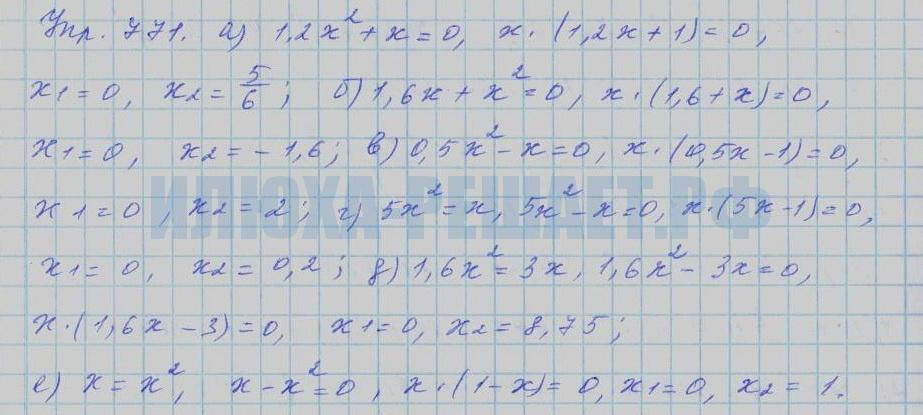 Упр. 771. а) 1,2x²+x=0, x·(1,2x+1)=0,
x1=0, x2=5/6; б) 1,6x+x²=0, x·(1,6+x)=0,
x1=0, x2=-1,6; в) 0,5x²-x=0, x·(0,5x-1)=0,
ИЛЮХА-РЕШАЕТ.РФ
x1=0, x2=2; г) 5x²=x, 5x²-x=0, x·(5x-1)=0,
x1=0, x2=0,2; д) 1,6x²=3x, 1,6x²-3x=0,
x·(1,6x-3)=0, x1=0, x2=8,75;
е) x=x², x-x²=0, x·(1-x)=0, x1=0, x2=1.